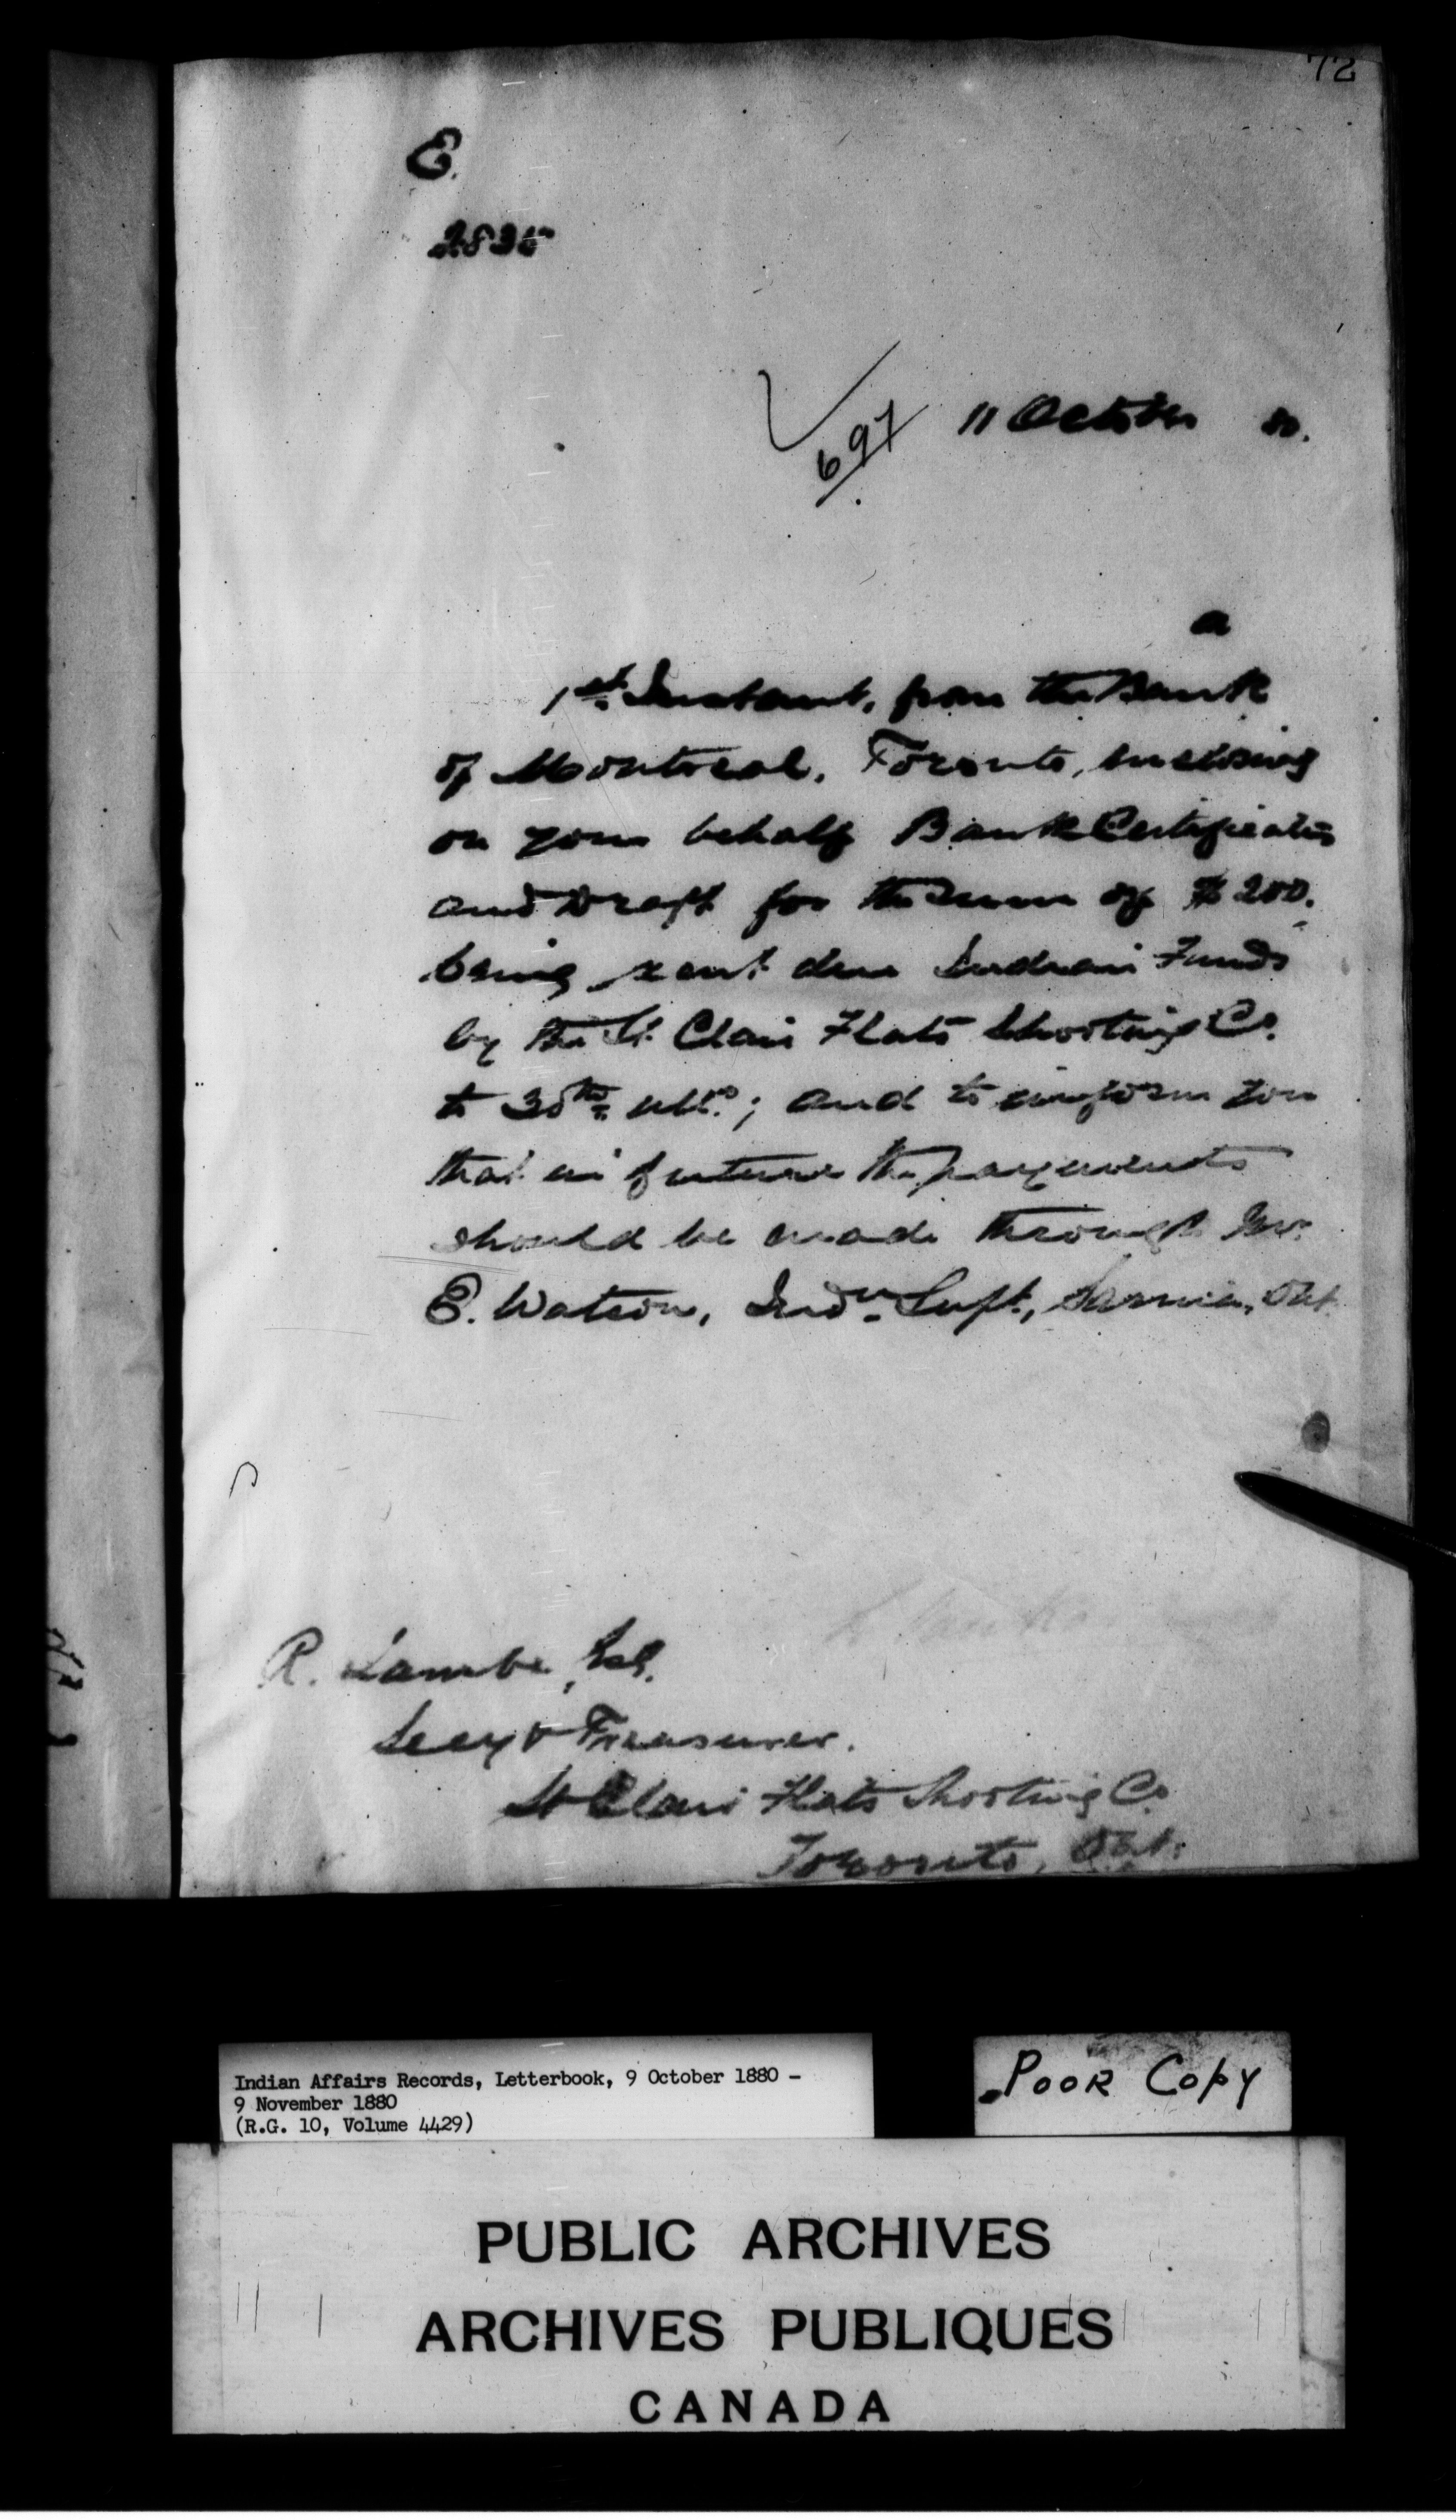 72
E.
2835
697 11 October 80.
a
1st. Instant, from the Bank
of Montreal, Toronto, enclosing
on your behalf Bank Certificates
and Draft for the sum of $200.
being rent due Indian Funds
by the St. Clair Flats Shooting Co.
to 30th ulto; and to inform you
that in future the payments
should be made through Mr.
E. Watson, Indn. Supt., Sarnia, Ont.
R. Lambe, Esq.
Secy & Treasurer.
St Clair Flats Shooting Co.
Toronto, Ont.
Indian Affairs Records, Letterbook, 9 October 1880 -
9 November 1880
(R.G. 10, Volume 4429)
Poor Copy
PUBLIC ARCHIVES
ARCHIVES PUBLIQUES
CANADA